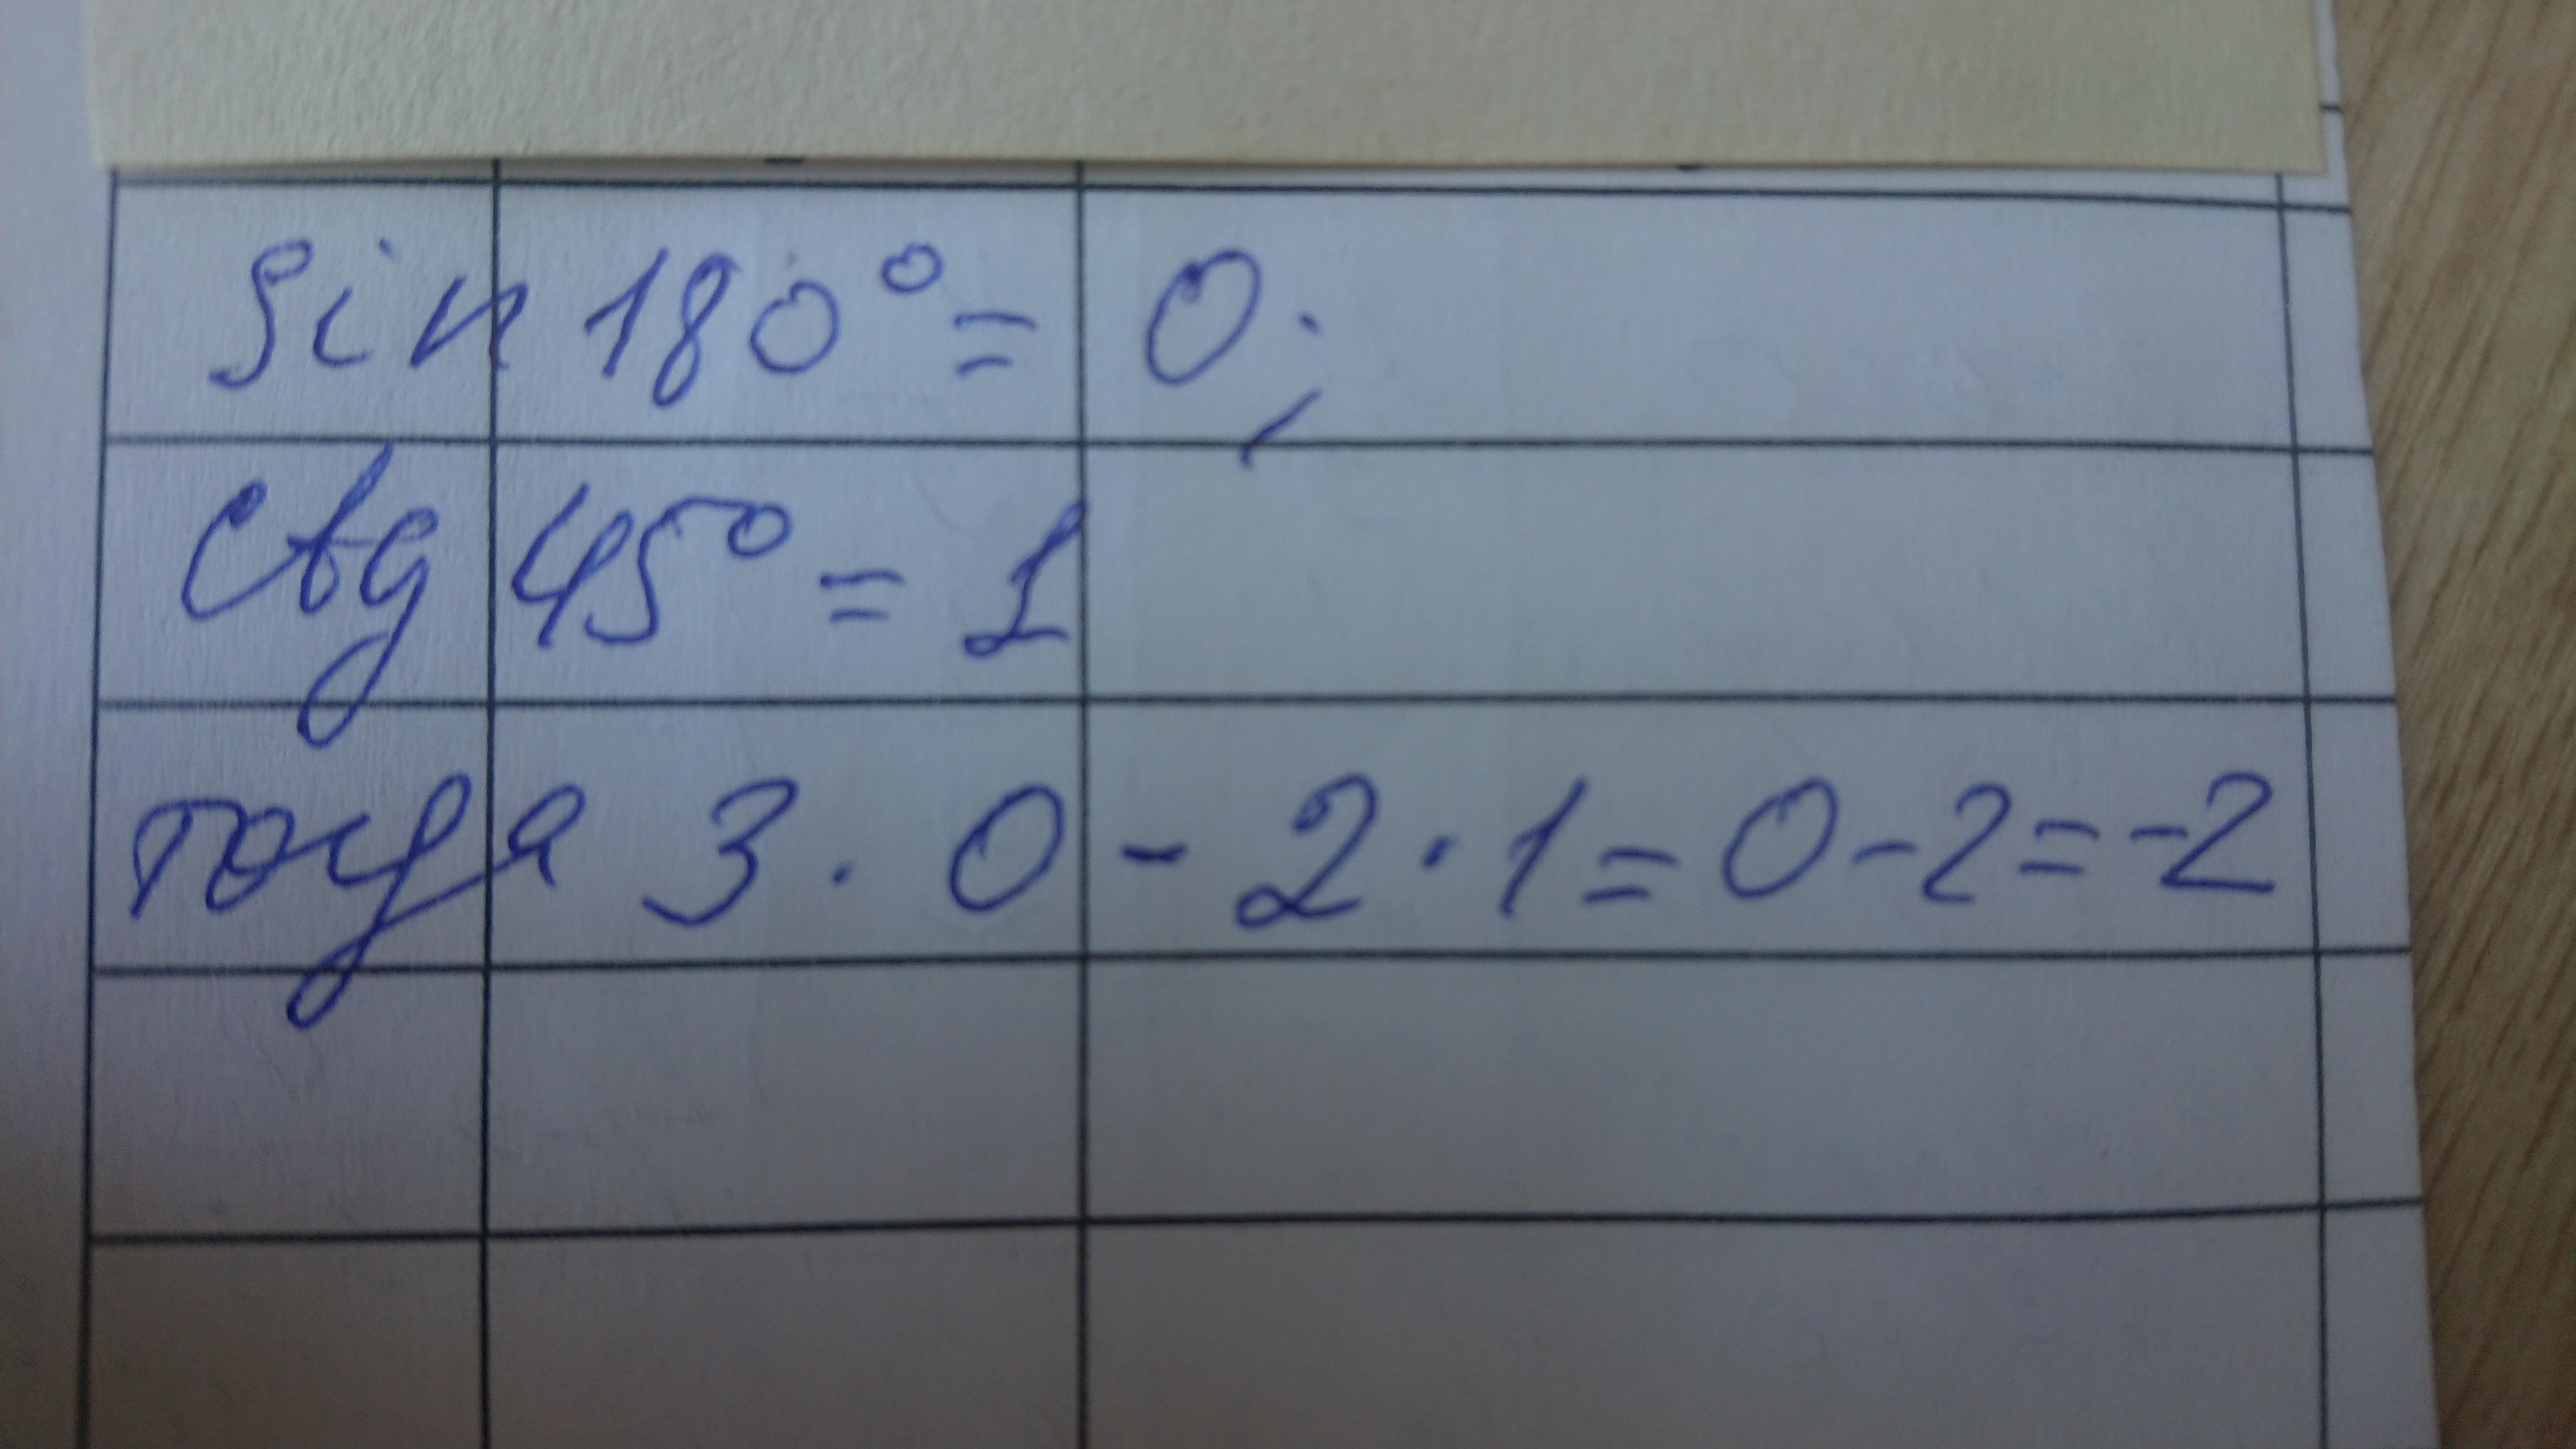 Sin 180° = 0;
ctg 45° = 1
тогда 3 · 0 - 2 · 1 = 0 - 2 = -2